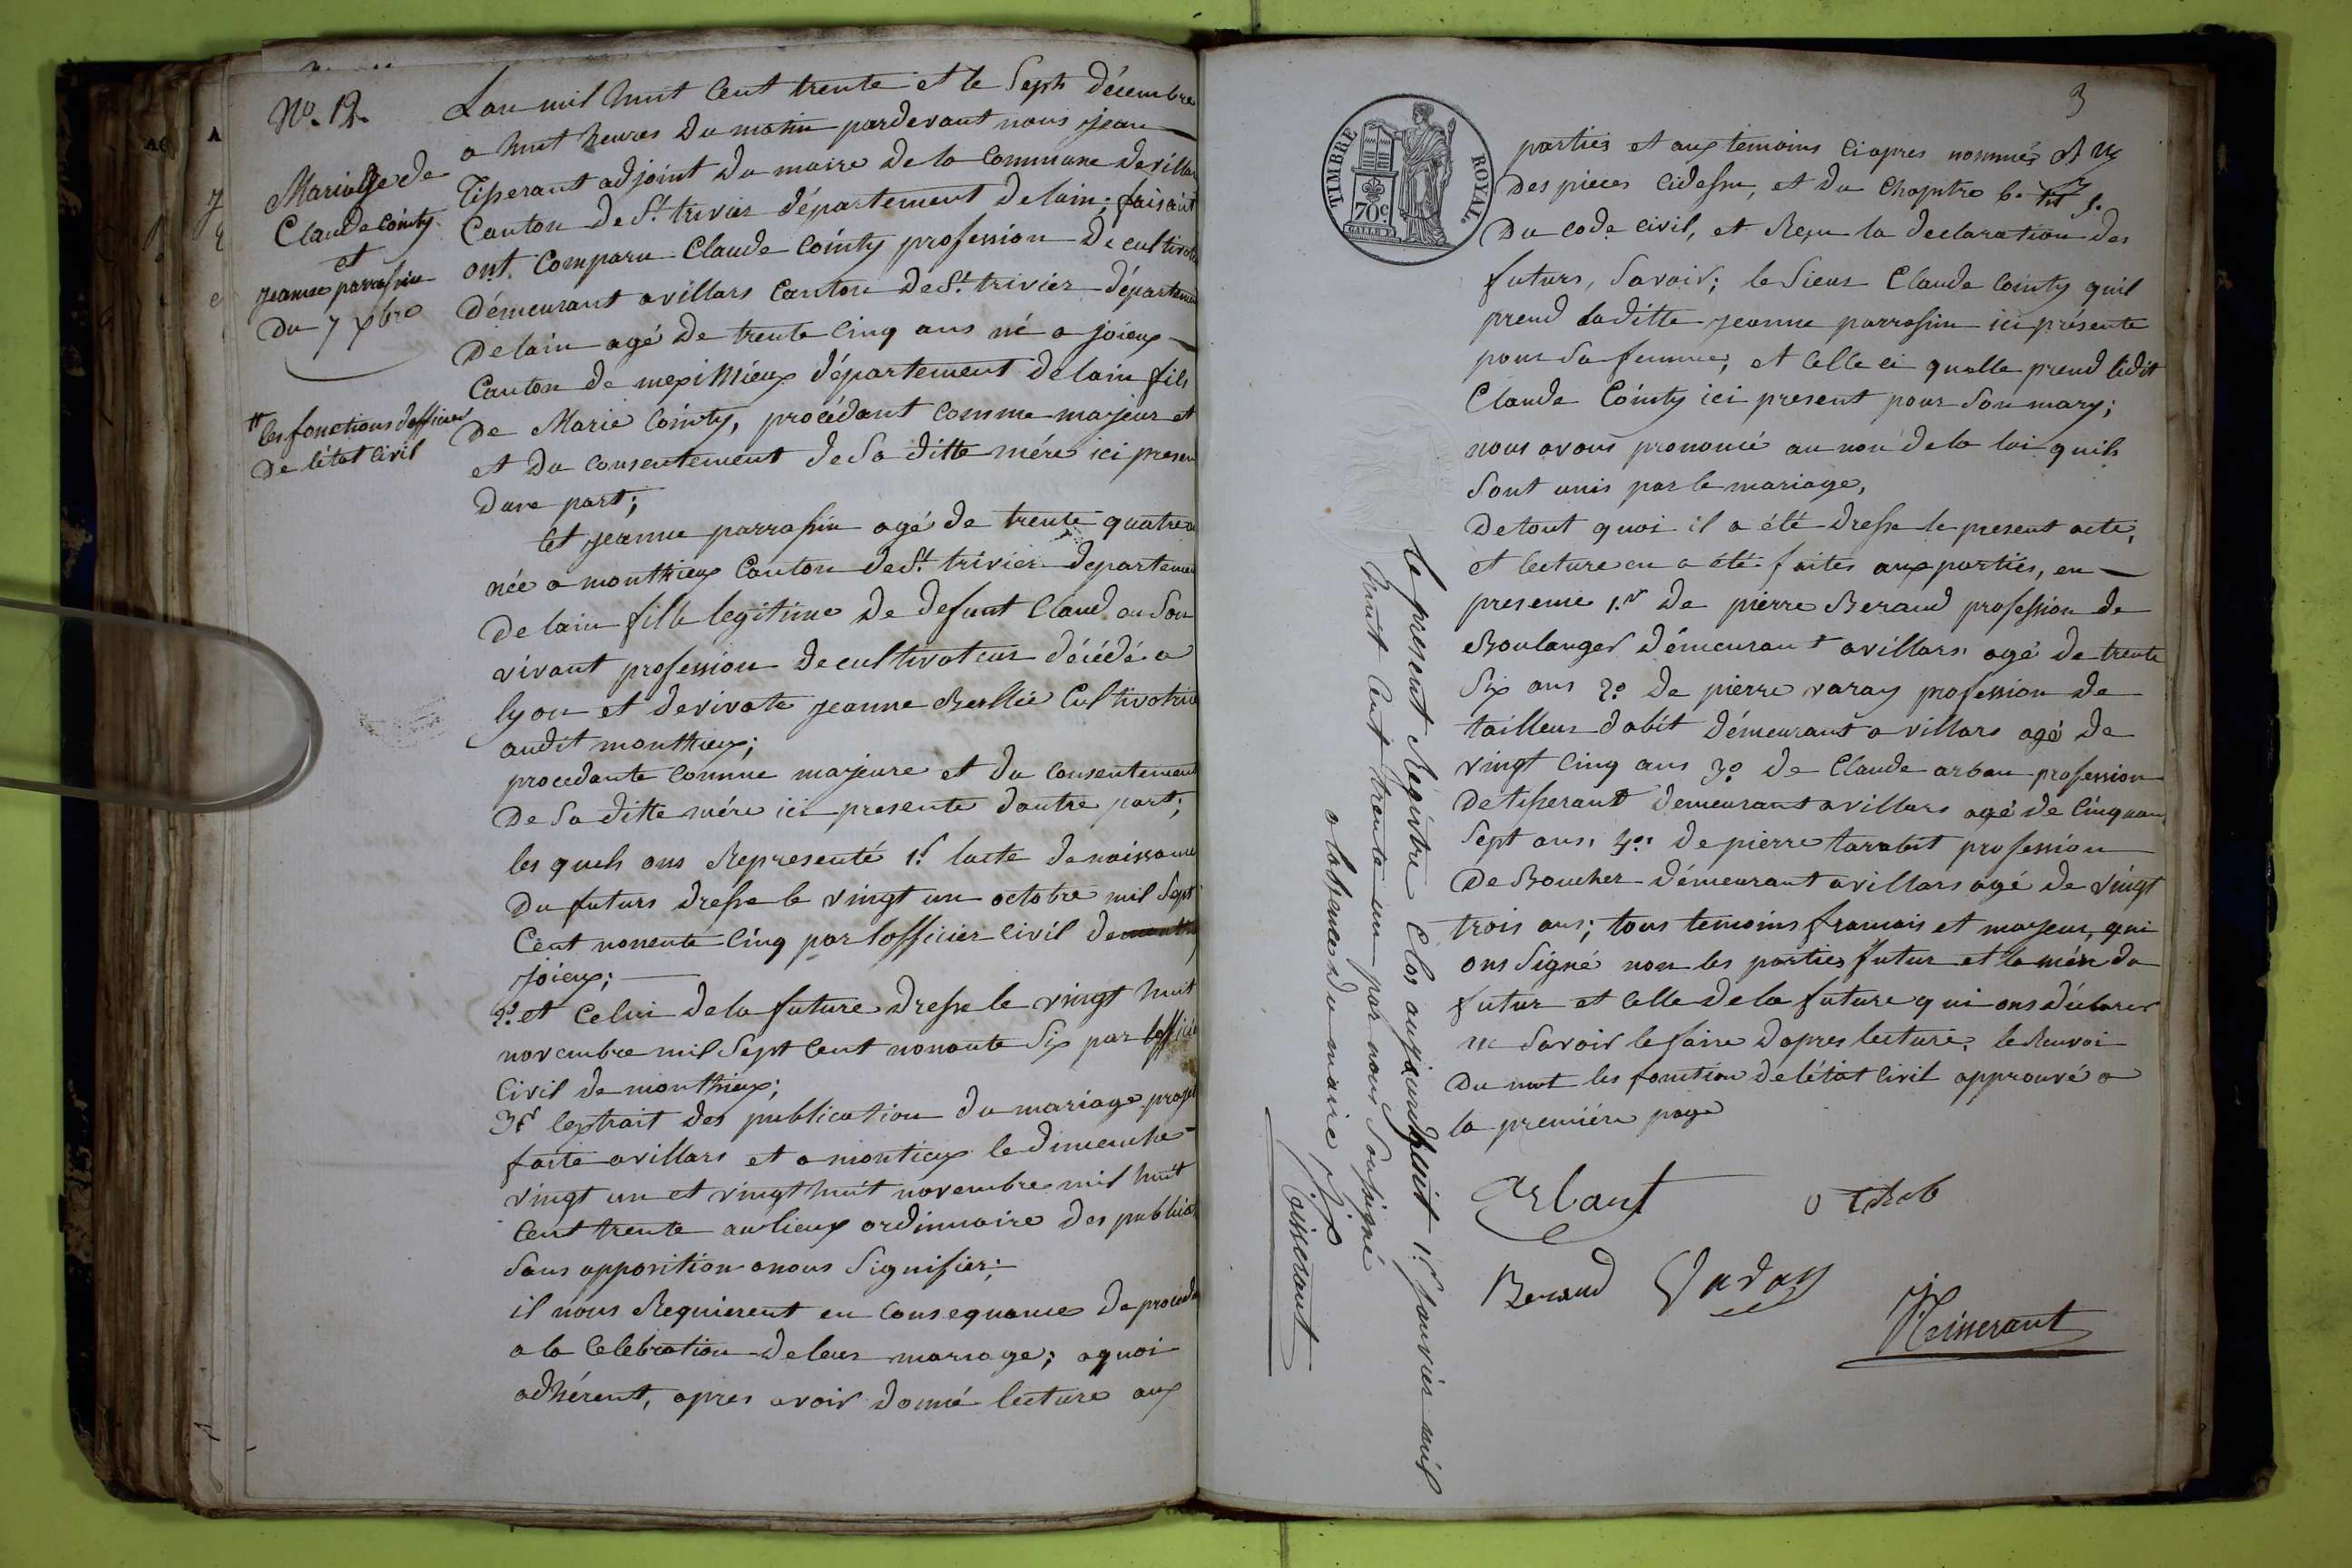 No. 12.
Mariage de
Claude Cointy
et
jeanne parrassin
Du 7 xbre
# les fonctions dofficier
De létat Civil
Lan mil huit Cent trente et le Sept Décembre
a huit heures Du matin pardevant nous jean
Tisserant adjoint Du maire De la Commune de villa
Canton De St. trivier département De lain; faisant
ont Comparu Claude Cointy profession De cultivat
Démeurant a villars Canton De St. trivier Départemen
De lain agé De trente Cinq ans né a joieux
Canton de meximieux département De lain fils
De Marie Cointy, procédant Comme majeur et
et Du Consentement de Sa ditte mére ici presen
Dune part;
Et jeanne parrassin agé de trente quatre a
née a monthieux Canton de St. trivier departemen
De lain fille legitime De defunt Claud au Son
vivant profession De cultivateur décédé a
lyon et de vivante jeanne Cultivatrice
audit monthieux;
procedante Comme majeure et du Consentement
De Sa ditte mére ici presente dautre part;
les quels ons Representé 1.t lacte de naissance
Du futurs Dresse le vingt un octobre mil Sept
Cent nonente Cinq par lofficier Civil de
joieux;
2.o et Celui de la future Dresse le vingt huit
novembre mil Sept Cent nonante Six par loffici
Civil de monthieux;
3.t lextrait des publication du mariage projet
faite a villars et a montieux le dimenche
vingt un et vingt huit novembre mil huit
Cent trente au lieux ordinnaire des publica
Sans opposition a nous Signifier;
il nous Requierent en Consequance de procéde
a la Célébration de leur mariage; a quoi
adhérent, apres avoir Donné lecture aux
3
TIMBRE ROYAL.
70 c
parties et aux temoins Ciapres nommés
Des pieces Cidessu, et du Chapitre 6. tit 5.
Du Code Civil, et Reçu la Declaration des
futurs, Savoir; le Sieur Claude Cointy quil
prend laditte jeanne parrassin ici présente
pour Sa femme, et Celle ci qualle prend ledit
Claude Cointy ici present pour Son mary;
nous avons prononcé au non de la loi quils
Sont unis par le mariage,
De tout quoi il a été dresse le present acte,
et lecture en a été faites aux parties, en
presence 1.r De pierre Beraud profession de
Boulanger Démeurant a villars agé de trente
Six ans 2.o De pierre varay profession de
tailleur dabit démeurant a villars agé de
vingt Cinq ans 3.o de Claude arban profession
De tisserant demeurant a villars agé de Cinquan
Sept ans, 4.o de pierre tarabit profession
De Boucher démeurant a villars agé de vingt
trois ans; tous temoins francais et majeur, qui
ons Signé non les parties futur et la mére du
futur et Celle de la future qui ons déclarer
ne Savoir le faire dapres lecture. le Renvoi
Du mot les fonction de létat Civil approuvé a
la premiére page
Arbant
Beraud
Varay
JTeisserant
Le present Régistre Clos aujourdhuit 1.er Janvier mil
huit Cent trente un par nous Sousigné
a labsence du maire
JTeisserant